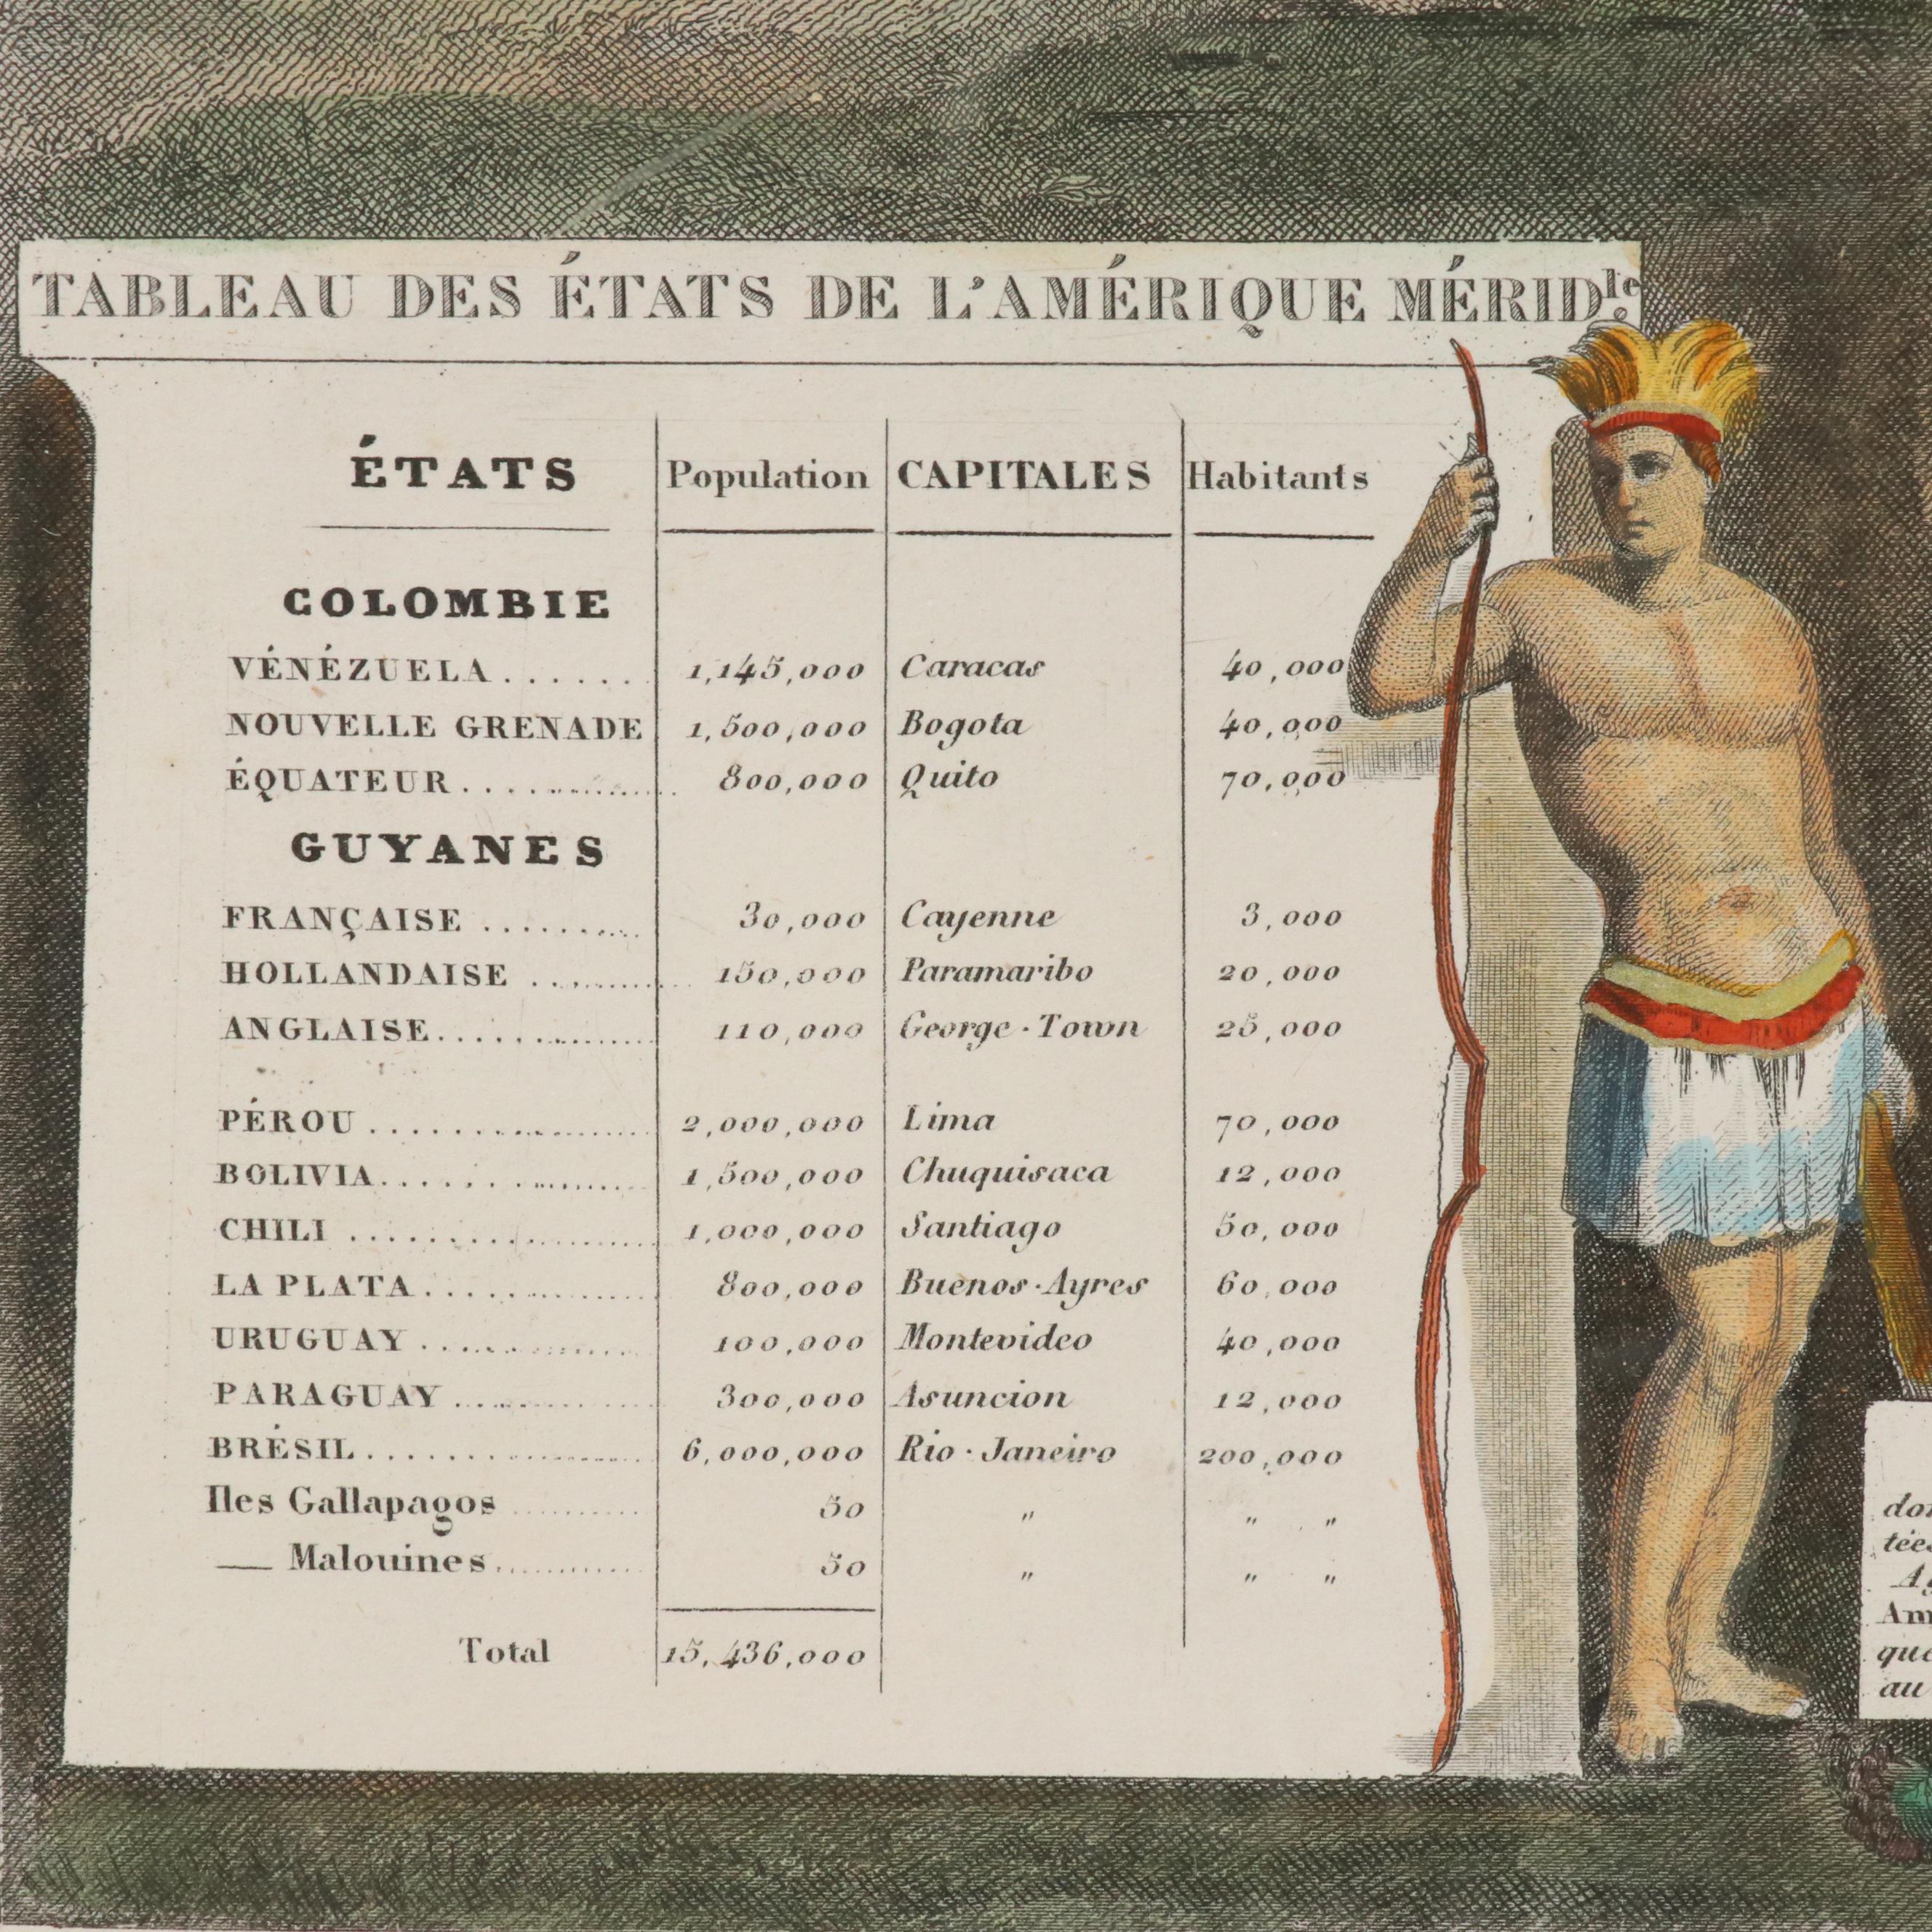 TABLEAU DES ÉTATS DE L'AMÉRIQUE MÉRID.le
ÉTATS Population CAPITALES Habitants
COLOMBIE
VÉNÉZUELA....... 1,145,000 Caracas 40,000
NOUVELLE GRENADE 1,500,000 Bogota 40,000
ÉQUATEUR.............. 800,000 Quito 70,000
GUYANES
FRANÇAISE .......... 30,000 Cayenne 3,000
HOLLANDAISE .......... 150,000 Paramaribo 20,000
ANGLAISE.............. 110,000 George-Town 25,000
PÉROU .................. 2,000,000 Lima 70,000
BOLIVIA................ 1,500,000 Chuquisaca 12,000
CHILI .................. 1,000,000 Santiago 50,000
LA PLATA.............. 800,000 Buenos-Ayres 60,000
URUGUAY .............. 100,000 Montevideo 40,000
PARAGUAY ............ 300,000 Asuncion 12,000
BRÉSIL.................. 6,000,000 Rio-Janeiro 200,000
Iles Gallapagos .......... 50 " " "
— Malouines............ 50 " " "
Total 15,436,000
au